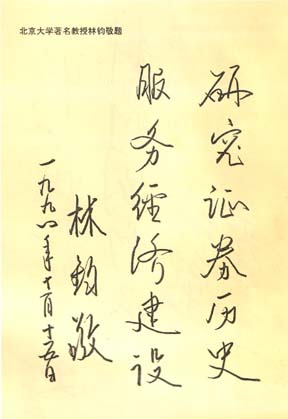 北京大学著名教授林钧敬题
研究证券历史
服务经济建设
林钧敬
一九九八年十月十五日